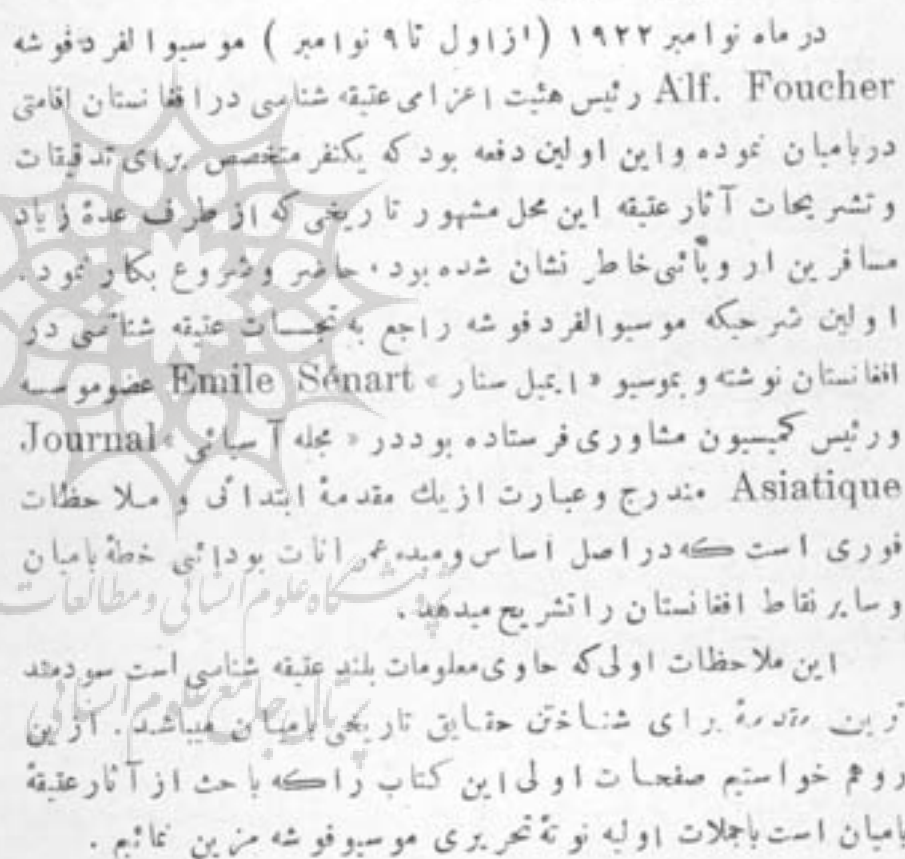 در ماه نوامبر ۱۹۲۲ (از اول تا ۹ نوامبر) موسیو الفرد فوشه
Alf. Foucher رئیس هئیت اعزامی عتیقه شناسی در افغانستان اقامتی
در بامیان نموده و این اولین دفعه بود که یکنفر متخصص برای تدقیقات
و تشریحات آثار عتیقه این محل مشهور تاریخی که از طرف عدهٔ زیاد
مسافرین اروپائی خاطر نشان شده بود، حاضر و شروع بکار نمود.
اولین شرحیکه موسیو الفرد فوشه راجع به تجسسات عتیقه شناسی در
افغانستان نوشته و بموسیو «ایمیل سنار» Emile Sénart عضو موسسه
و رئیس کمیسیون مشاوری فرستاده بود در «مجله آسیائی» Journal
Asiatique مندرج و عبارت از یك مقدمهٔ ابتدائی و ملاحظات
فوری است که در اصل اساس و مبدء عمرانات بودائی خطهٔ بامیان
و سایر نقاط افغانستان را تشریح میدهد.
این ملاحظات اولی که حاوی معلومات بلند عتیقه شناسی است سودمند
ترین مقدمهٔ برای شناختن حقایق تاریخی بامیان میباشد. ازین
رو هم خواستیم صفحات اولی این کتاب را که باحث از آثار عتیقهٔ
بامیان است باجملات اولیه نوتهٔ تحریری موسیو فوشه مزین نمائیم.
پژوهشگاه علوم انسانی و مطالعات
پرتال جامع علوم انسانی